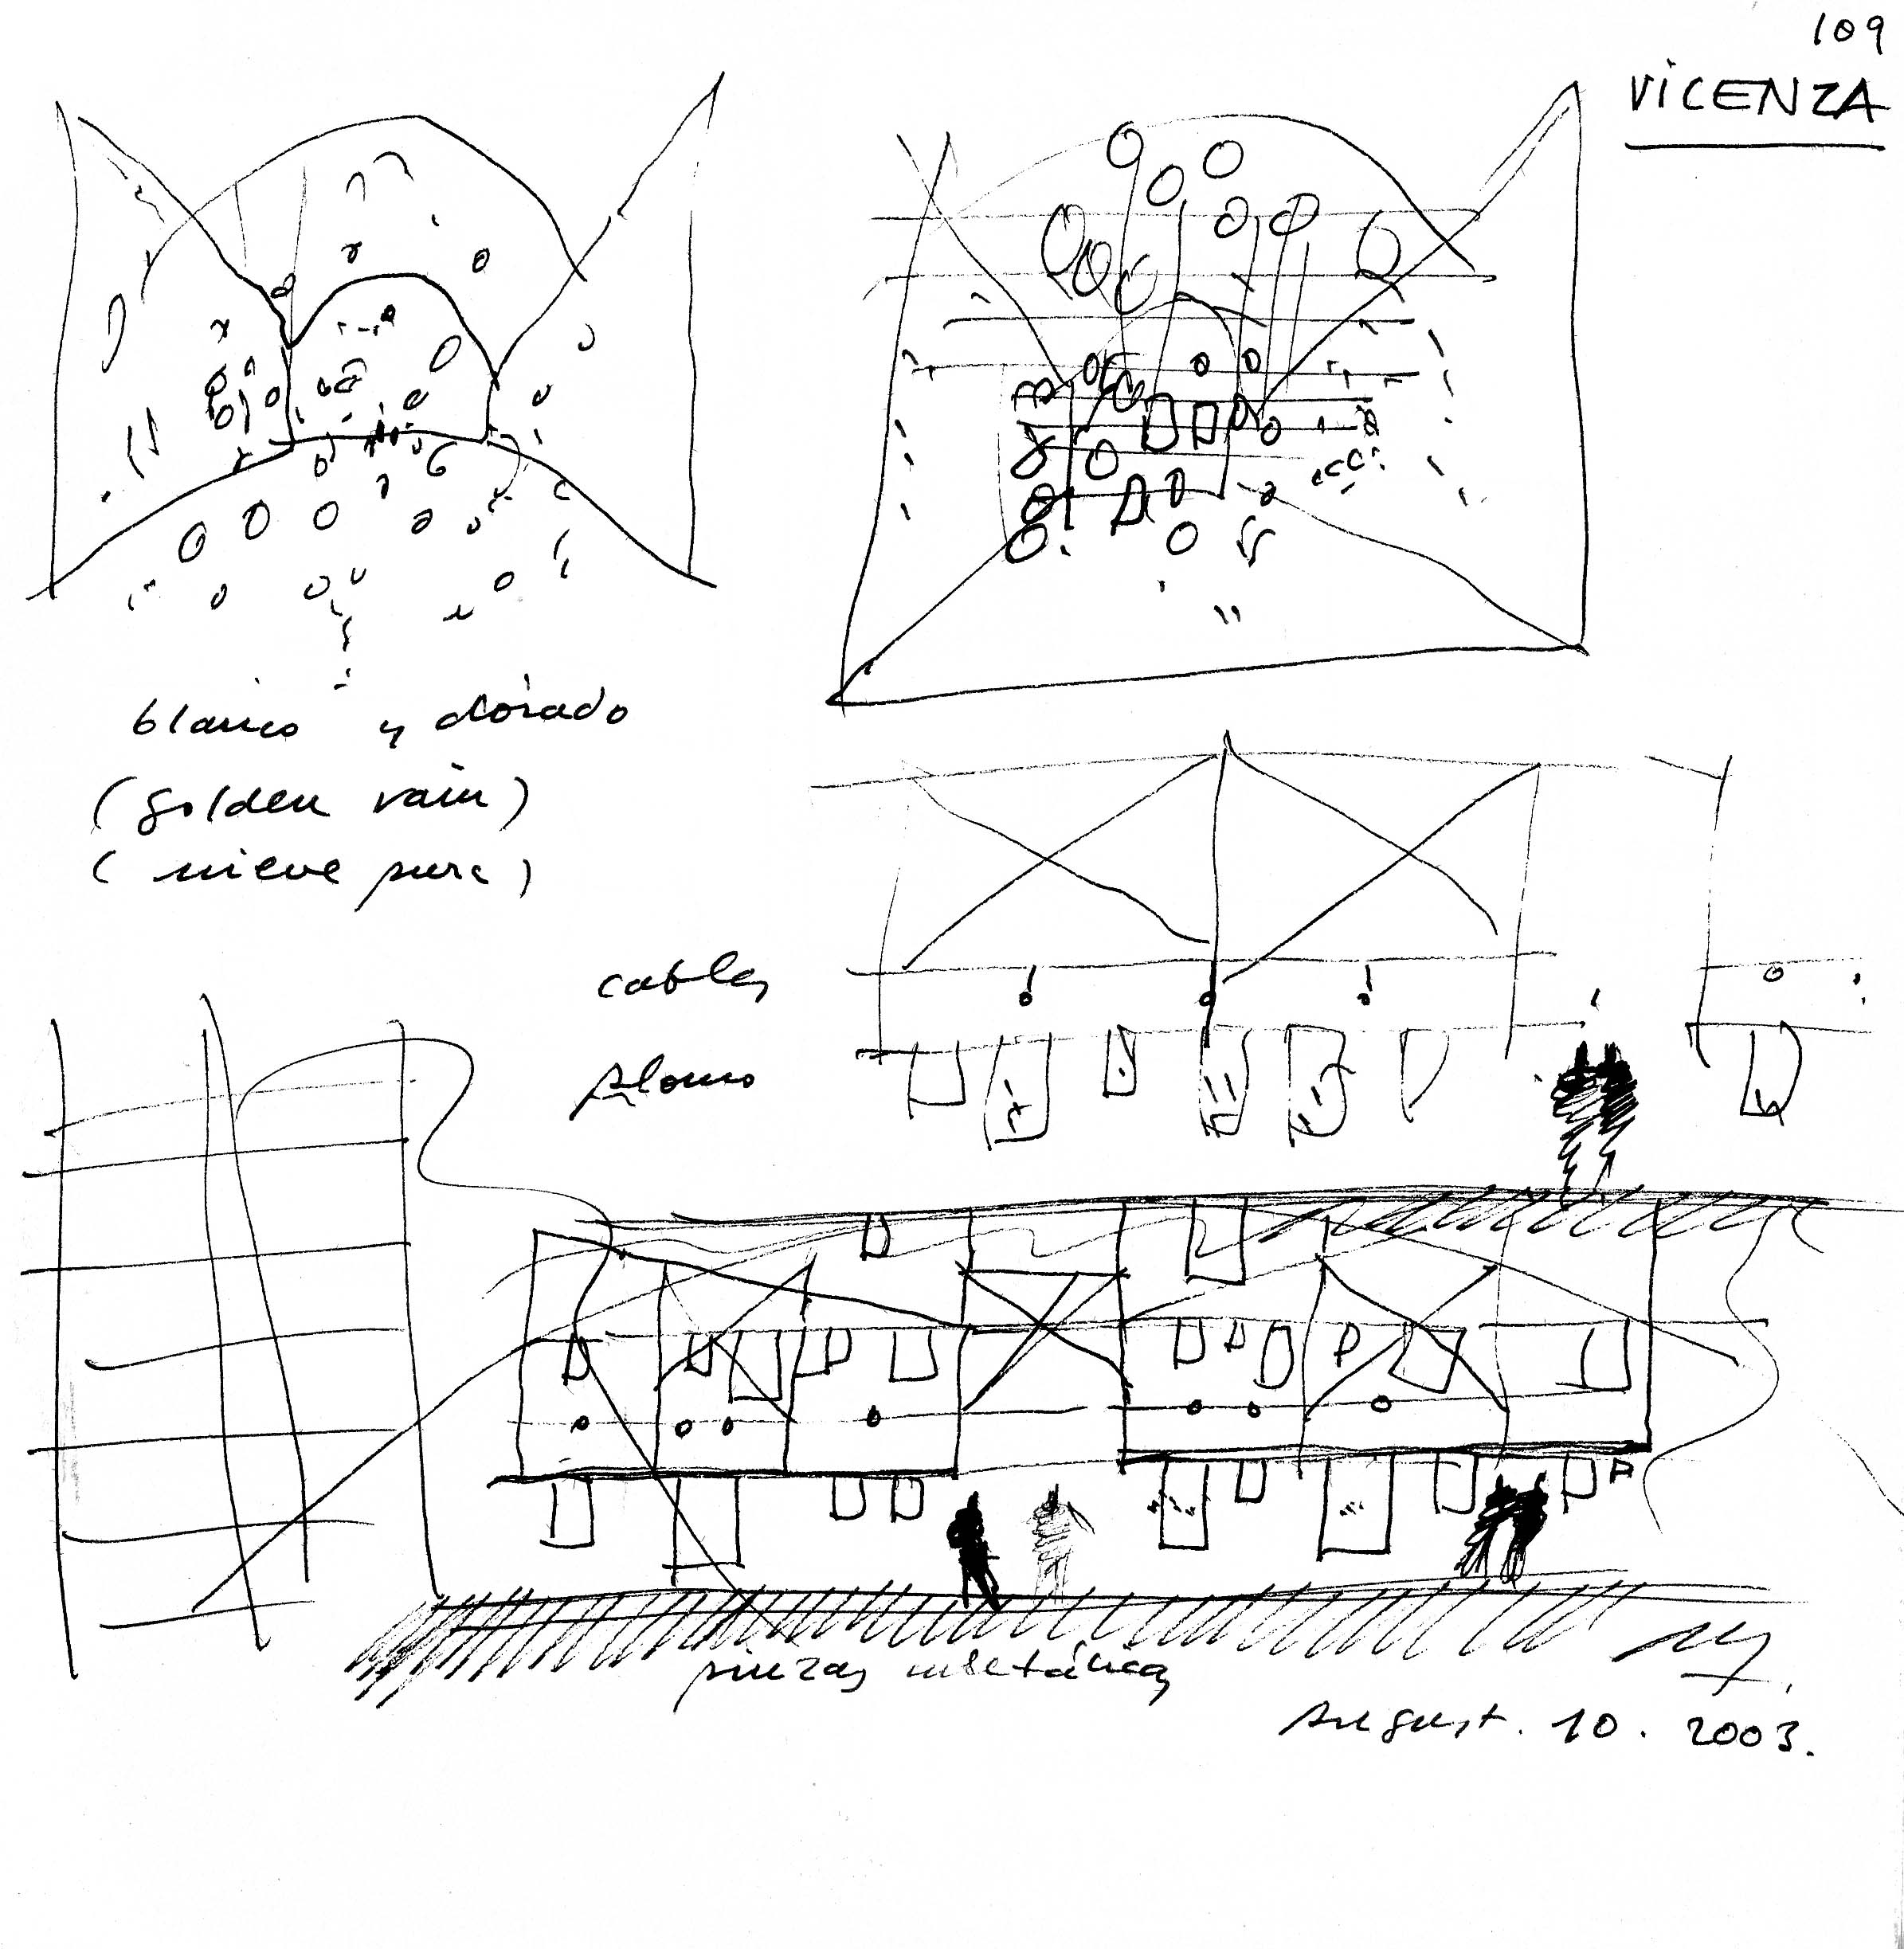 109
VICENZA
blanco y dorado
(golden rain)
(nieve pura)
cables
plomo
pinzas metálicas
August. 10. 2003.